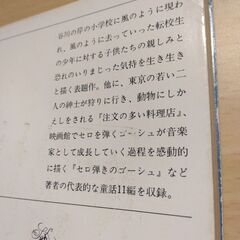 谷川の岸の小学校に風のように現わ
れ、風のように去っていった転校生
の少年に対する子供たちの親しみと
恐れのいりまじった気持を生き生き
と描く表題作。他に、東京の若い二
人の紳士が狩りに行き、動物にしか
えしをされる『注文の多い料理店』、
映画館でセロを弾くゴーシュが音楽
家として成長していく過程を感動的
に描く『セロ弾きのゴーシュ』など
著者の代表的な童話11編を収録。